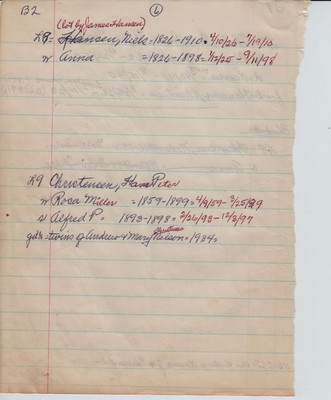 B2
6
(lot by James Hansen)
L8= Hansen, Niels = 1826-1910 = 4/10/26 - 7/19/10
w Anna = 1826-1898 = 1/12/25 - 9/11/98
L9 Christensen, Hans Peter
w Rosa Miller = 1859-1899 = 4/9/59 - 3/25/99
s Alfred P. 1893-1898 = 2/26/93 - 12/8/97
gds = twins of Andrew & Mary Nielson = 1934 =